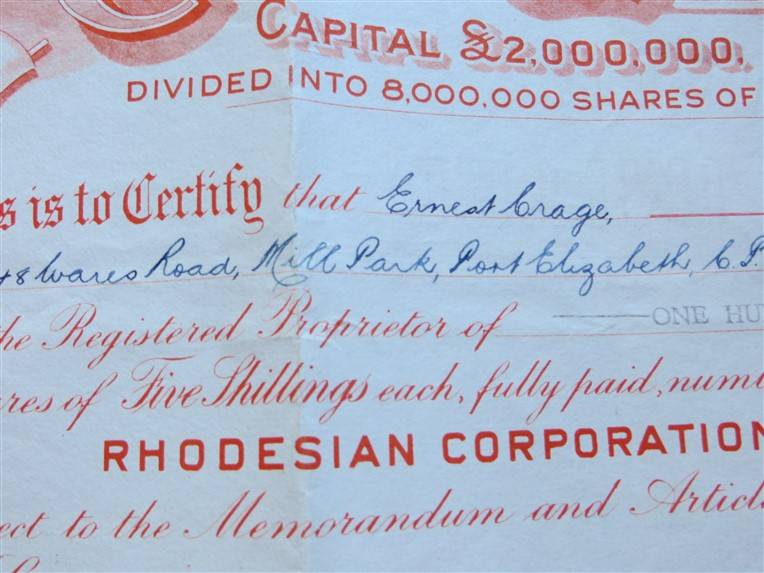 CAPITAL £2,000,000,
DIVIDED INTO 8,000,000 SHARES OF
s is to Certify that Ernest Crage,
48 Wares Road, Mill Park, Port Elizabeth, C.P.
the Registered Proprietor of ONE HU
res of Five Shillings each, fully paid, num
RHODESIAN CORPORATION
ect to the Memorandum and Artic